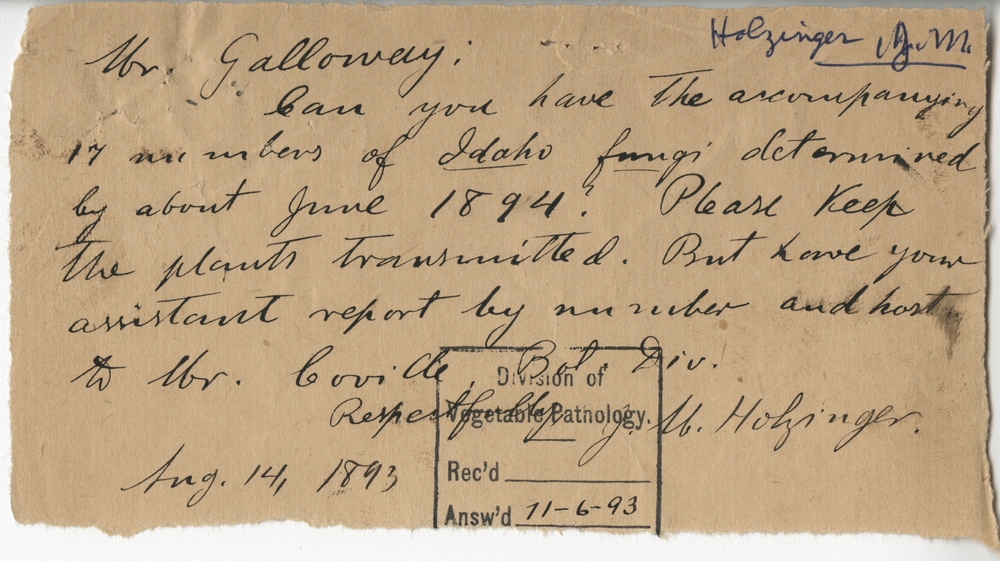 Holzinger J.M.
Mr. Galloway:
Can you have the accompanying
17 numbers of Idaho fungi determined
by about June 1894? Please Keep
the plants transmitted. But have your
assistant report by number and host
to Mr. Coville, Bot. Div.
Respectfully J. M. Holzinger.
Aug. 14, 1893
Division of
Vegetable Pathology.
Rec'd
Answ'd 11-6-93